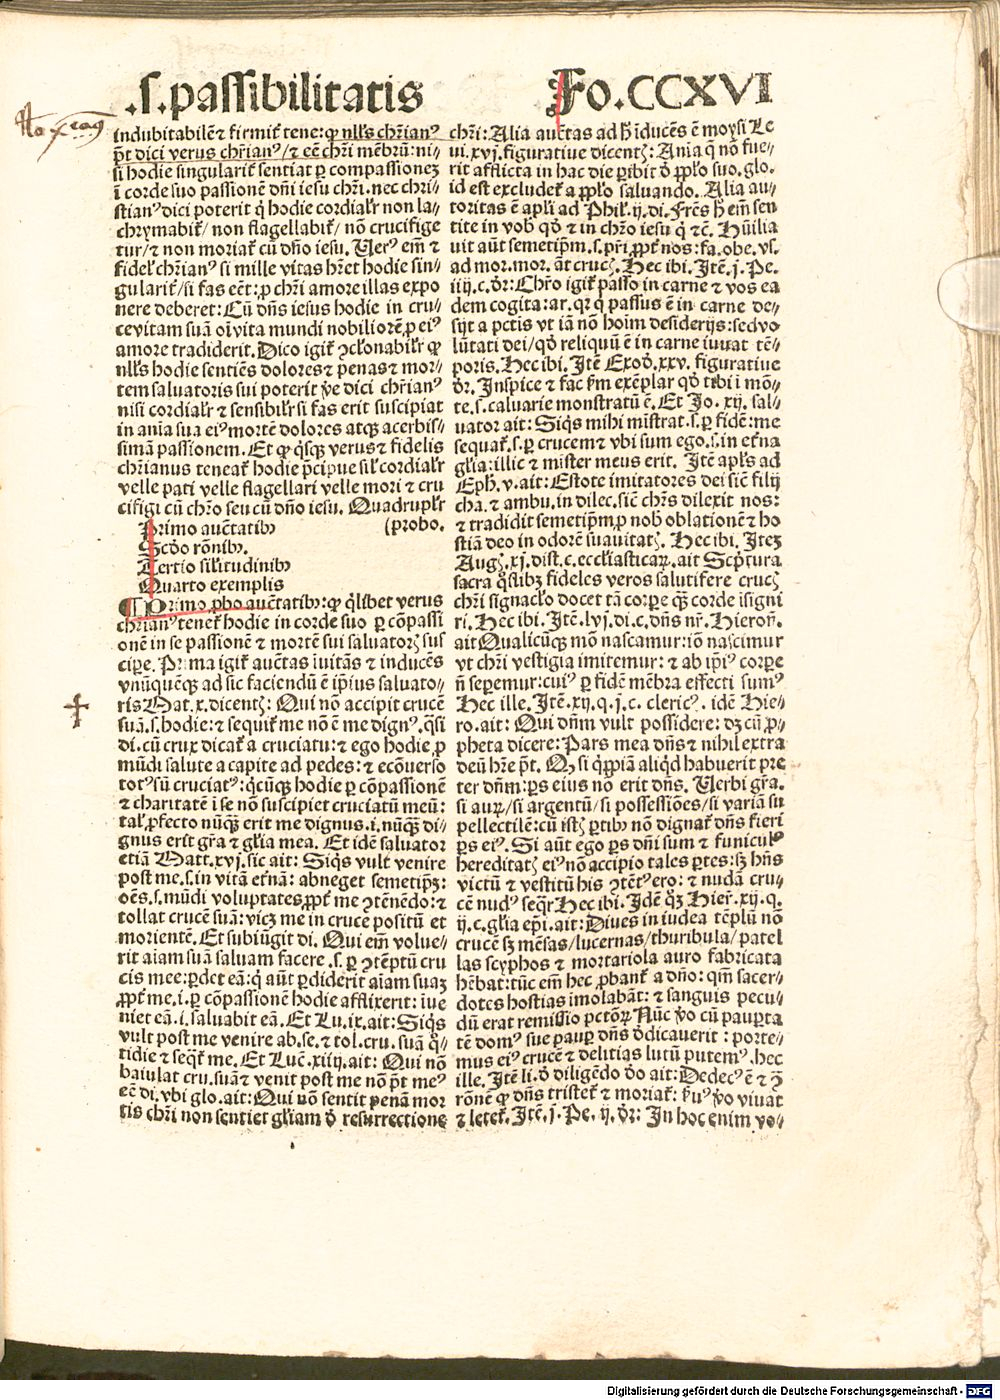 .s. passibilitatis
Fo. CCXVI
indubitabilē ⁊ firmiť tene: ꝙ nll̄s chr̄ianꝰ
p̄t dici verus chr̄ianꝰ/ ⁊ eē chr̄i mēbrū: ni⸗
si hodie singulariť sentiat ꝑ compassioneꝫ
ī corde suo passionē dn̄i iesu chr̄i. nec chri⸗
stianꝰ dici poterit q̇ hodie cordialr̄ non la⸗
chrymabiť/ non flagellabiť/ nō crucifige
tur/ ⁊ non moriať cū dn̄o iesu. Uerꝰ em̄ ⁊
fidel̄ chr̄ianꝰ si mille vitas hr̄et hodie sin⸗
gulariť/ si fas eēt: ꝓ chr̄i amore illas expo
nere deberet: Cū dn̄s iesus hodie in cru⸗
ce vitam suā oī vita mundi nobiliorē ꝓ eiꝰ
amore tradiderit. Dico igiť ꝯclōnabilr̄ ꝙ
nll̄s hodie sentiēs dolores ⁊ penas ⁊ mor⸗
tem saluatoris sui poterit ṽe dici chr̄ianꝰ
nisi cordialr̄ ⁊ sensibilr̄ si fas erit suscipiat
in aīa sua eiꝰ mortē dolores atqꝫ acerbis⸗
simā passionem. Et ꝙ q̇lsqꝫ verus ⁊ fidelis
chr̄ianus teneať hodie p̄cipue sil̄ cordialr̄
velle pati velle flagellari velle mori ⁊ cru
cifigi cū chr̄o seu cū dn̄o iesu. Quadruplr̄
Primo auc̄tatibꝫ (probo.
Scd̄o rōnibꝫ.
Tertio sil̄itudinibꝫ
Quarto exemplis
¶ Primo ꝓbo auc̄tatibꝫ: ꝙ q̇libet verus
chr̄ianꝰ teneť hodie in corde suo ꝑ cōpassi
onē in se passionē ⁊ mortē sui saluatorꝭ sus
cipe. Prima igiť auc̄tas īuitās ⁊ inducēs
vnūquēqꝫ ad sic faciendū ē ip̄ius saluato⸗
ris Mat. x. dicentꝭ: Qui nō accipit crucē
suā .s. hodie: ⁊ sequiť me nō ē me dignꝰ. q̄si
di. cū crux dicať a cruciatu: ⁊ ego hodie ꝓ
mūdi salute a capite ad pedes: ⁊ ecōuerso
totꝰ sū cruciatꝰ: q̇cūqꝫ hodie ꝑ cōpassionē
⁊ charitatē ī se nō suscipiet cruciatū meū:
tal̄ ꝓfecto nūqꝫ erit me dignus .i. nūqꝫ di⸗
gnus erit gr̄a ⁊ gl̄ia mea. Et idē saluator
etiā Matt. xvj. sic ait: Siqͥs vult venire
post me .s. in vitā eťnā: abneget semetip̄ꝫ:
oēs .s. mūdi voluptates ꝓpť me ꝯtēnēdo: ⁊
tollat crucē suā: vicꝫ me in cruce positū et
morientē. Et subiūgit di. Qui em̄ volue⸗
rit aīam suā saluam facere .s. ꝑ ꝯtēptū cru
cis mee: ꝑdet eā: q̇ aūt ꝑdiderit aīam suaꝫ
ꝓpť me .i. ꝑ cōpassionē hodie afflixerit: īue
niet eā .i. saluabit eā. Et Lu. ix. ait: Siqͥs
vult post me venire ab. se. ⁊ tol. cru. suā q̇⸗
tidie ⁊ seqͣť me. Et Luc̄. xiiij. ait: Qui nō
baiulat cru. suā ⁊ venit post me nō p̄t meꝰ
eē di. vbi glo. ait: Qui nō sentit penā mor
tis chr̄i non sentiet gl̄iam ď resurrectione
chr̄i: Alia auc̄tas ad h̄ īducēs ē moysi Le
ui. xvj. figuratiue dicentꝭ: Aīa q̄ nō fue⸗
rit afflicta in hac die ꝑibit ď ꝓp̄lo suo. glo.
id est excludeť a ꝓp̄lo saluando. Alia au⸗
toritas ē apl̄i ad Phil̄. ij. di. Fr̄es h̄ em̄ sen
tite in vob̄ qď ⁊ in chr̄o iesu q̇ ⁊c̄. Hūilia
uit aūt semetip̄m .s. pr̄i ꝓpť nos: fa. obe. vs.
ad mor. mor. āt crucꝭ. Hec ibi. Itē. j. Pe.
iiij. c. ďr: Chr̄o igiť passo in carne ⁊ vos ea
dem cogita: ar. qꝛ q̇ passus ē in carne de⸗
sijt a pctīs vt iā nō hoīm desiderijs: sed vo
lūtati dei/ qď reliquū ē in carne iuuat tē⸗
poris. Hec ibi. Itē Exoď. xxv. figuratiue
ďr. Inspice ⁊ fac ẜm exēplar qď tibi ī mō⸗
te .s. caluarie monstratū ē. Et Jo. xij. sal⸗
uator ait: Siqͥs mihi mīstrat .s. ꝑ fidē: me
sequať .s. ꝑ crucem ⁊ vbi sum ego .s. in eťna
gl̄ia: illic ⁊ mīster meus erit. Itē apl̄s ad
Eph̄. v. ait: Estote imitatores dei sič filij
cha. ⁊ ambu. in dilec. sič chr̄s dilexit nos:
⁊ tradidit semetip̄m ꝓ nob̄ oblationē ⁊ ho
stiā deo in odorē suauitatꝭ. Hec ibi. Iteꝫ
Augꝰ. xj. dist. c. ecclīasticaꝝ. ait Scp̄tura
sacra q̇stlibꝫ fideles veros salutifere crucꝭ
chr̄i signacl̄o docet tā corpe qꝫ corde īsigni
ri. Hec ibi. Itē. lvj. di. c. dn̄s nr̄. Hieroñ.
ait Qualicūqꝫ mō nascamur: iō nascimur
vt chr̄i vestigia imitemur: ⁊ ab ip̄iꝰ corpe
ñ sepemur: cuiꝰ ꝑ fidē mēbra effecti sumꝰ
Hec ille. Itē. xij. q. j. c. clericꝰ. idē Hie⸗
ro. ait: Qui dn̄m vult possidere: dꝫ cū ꝓ⸗
pheta dicere: Pars mea dn̄s ⁊ nihil extra
deū hr̄e p̄t. Qꝫ si q̇ppiā aliqd̄ habuerit pre
ter dn̄m: ps eius nō erit dn̄s. Uerbi gr̄a.
si auꝝ/ si argentū/ si possessiōes/ si variā su
pellectilē: cū istꝭ ꝑtibꝫ nō dignať dn̄s fieri
ps eiꝰ. Si aūt ego ps dn̄i sum ⁊ funiculꝰ
hereditatꝭ eiꝰ nō accipio tales ptes: sꝫ hn̄s
victū ⁊ vestitū his ꝯtētꝰ ero: ⁊ nudā cru⸗
cē nudꝰ seqͣr Hec ibi. Idē qͣꝫ Hier̄. xij. q.
ij. c. gl̄ia epī. ait: Diues in iudea tēplū nō
crucē sꝫ mēsas/ lucernas/ thuribula/ patel
las scyphos ⁊ mortariola auro fabricata
hēbat: tūc em̄ hec ꝓbanť a dn̄o: qm̄ sacer⸗
dotes hostias imolabāt: ⁊ sanguis pecu⸗
dū erat remissio pctōꝝ Nūc ṽo cū paupta
tē domꝰ sue paup dn̄s ďdicauerit: porte⸗
mus eiꝰ crucē ⁊ delitias lutū putemꝰ. hec
ille. Itē li. ď diligēdo ďo ait: Dedecꝰ ē ⁊ ꝯ
rōnē ꝙ dn̄s tristeť ⁊ moriať: ẜuꝰ ṽo viuat
⁊ leteť. Itē. j. Pe. ij. ďr: In hoc enim vo⸗
Digitalisierung gefördert durch die Deutsche Forschungsgemeinschaft - DFG